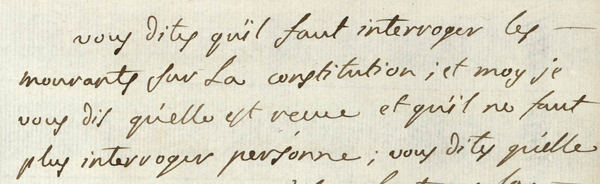 vous dites qu'il faut interroger les —
mourants sur La constitution ; et moy je
vous dis qu'elle est receue et qu'il ne faut
plus interroger personne ; vous dites qu'elle